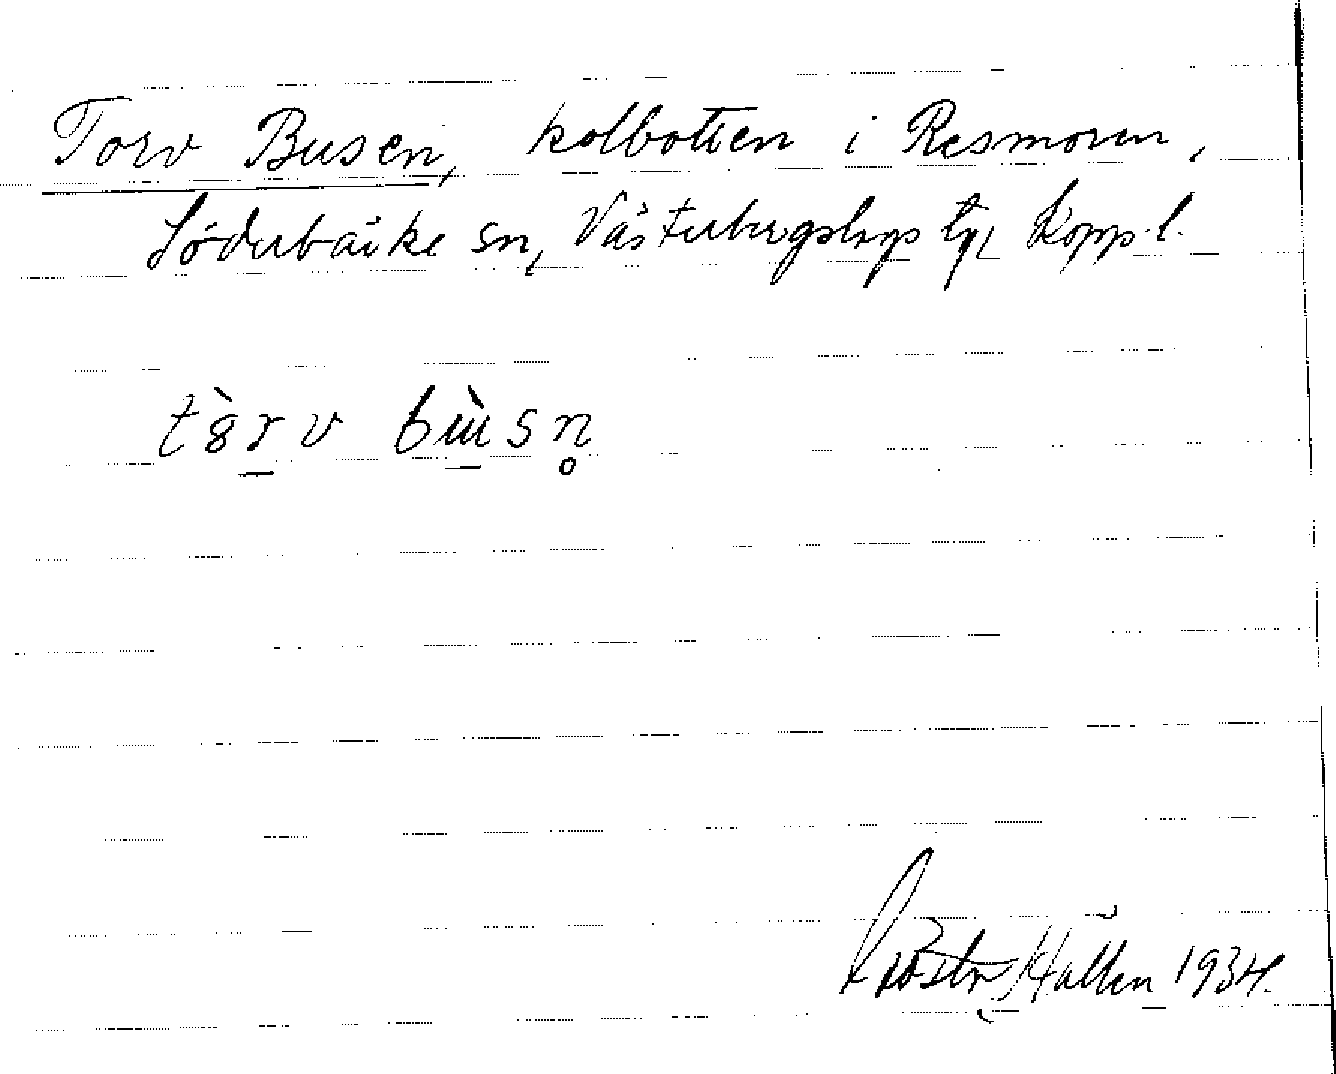 Torv Busen, kolbotten i Resmoren,
Söderbärke sn, Västerbergslags tgl Kopp.l.
tȍrv bɯ̀sn̥
Hallen 1934.